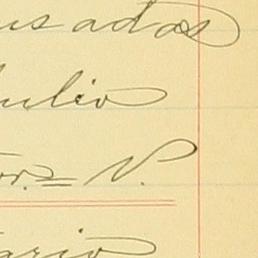 usados
ulio
or. N.
ario